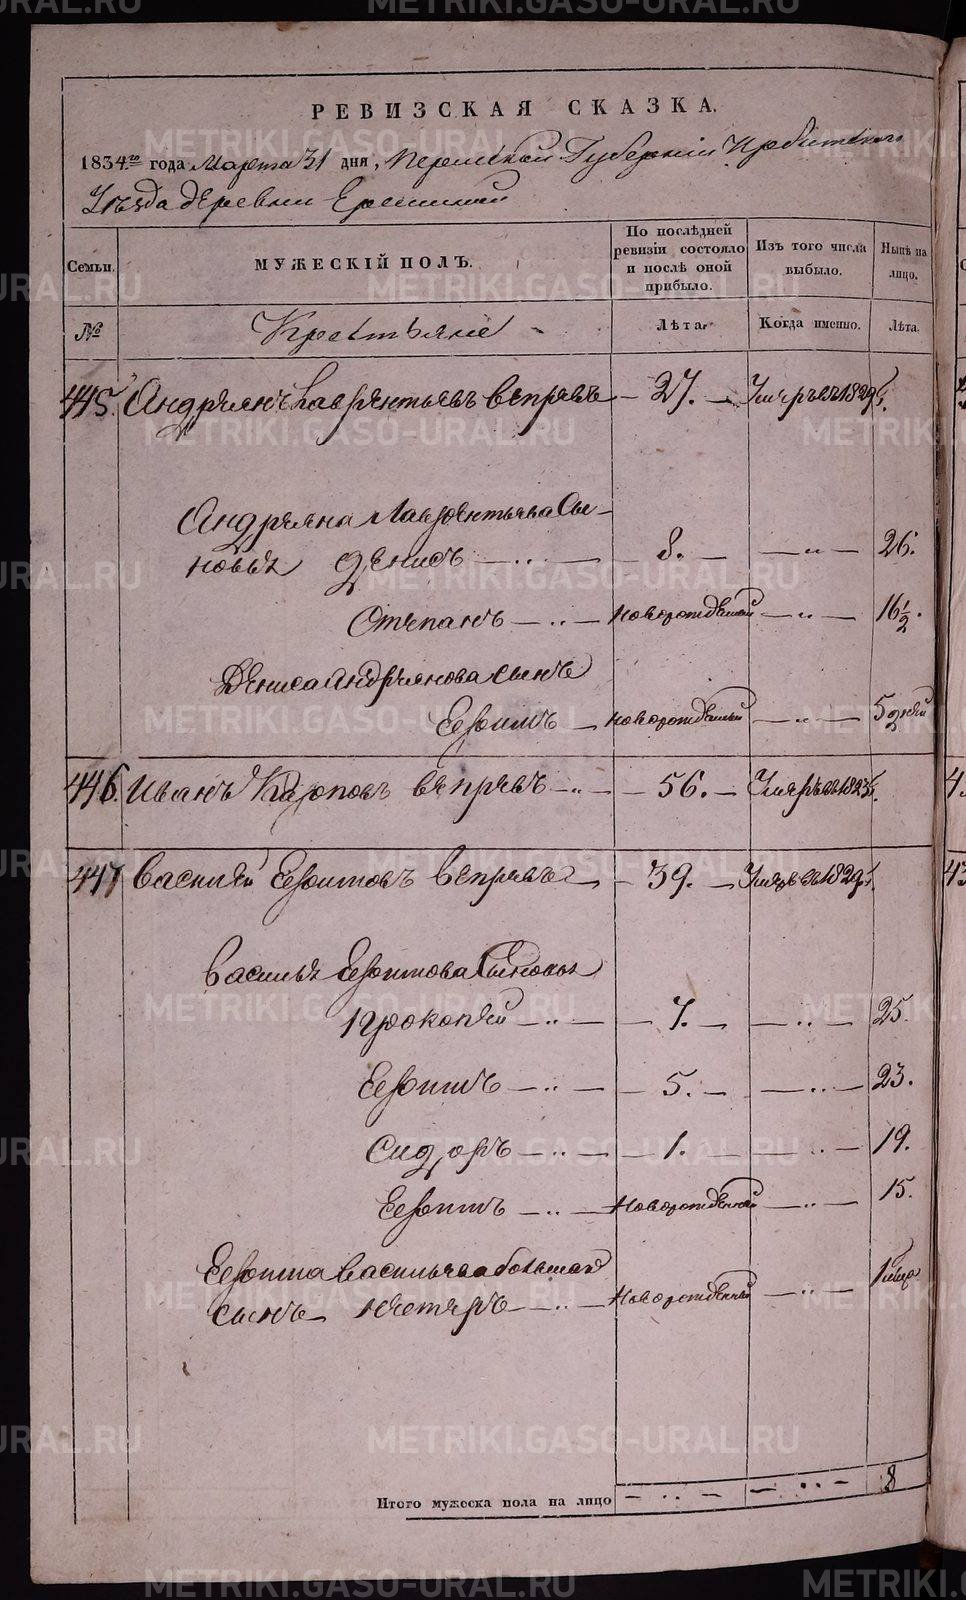 РЕВИЗСКАЯ СКАЗКА.
1834го года Марта 31 дня, Пермской Губернии Ирбитского
Уѣзда деревни
Семьи. МУЖЕСКІЙ ПОЛЪ. По послѣдней ревизіи состояло и послѣ оной прибыло. Изъ того числа выбыло. Нынѣ на лицо.
№ Крестьяне Лѣта. Когда именно. Лѣта.
445. Андреянъ Лаврентьевъ Вепревъ 27. Умеръ въ 1829.
Андреяна Лаврентьева Сы-
новья Денисъ 8. 26.
Степанъ новорожденный 16 1/2.
Дениса Андреянова сынъ
Ефимъ новорожденный 5 дней
446. Иванъ Карповъ Вепревъ 56. Умеръ въ 1825.
447 Василей Вепревъ 39. Умеръ въ 1829.
Василья Сыновья
Прокопей 7. 25.
5. 23.
Сидоръ 1. 19.
Новорожденный 15.
Васильева большаго
сынъ Новорожденный
Итого мужеска пола на лицо 8
METRIKI.GASO-URAL.RU